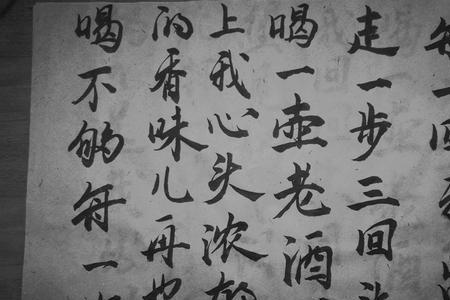 每一回
走一步三回头
喝一壶老酒
上我心头浓
的香味儿再也
喝不够每一